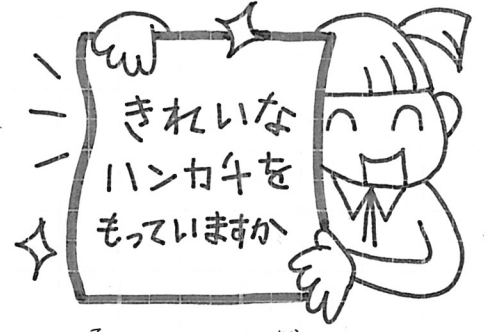 きれいな
ハンカチを
もっていますか